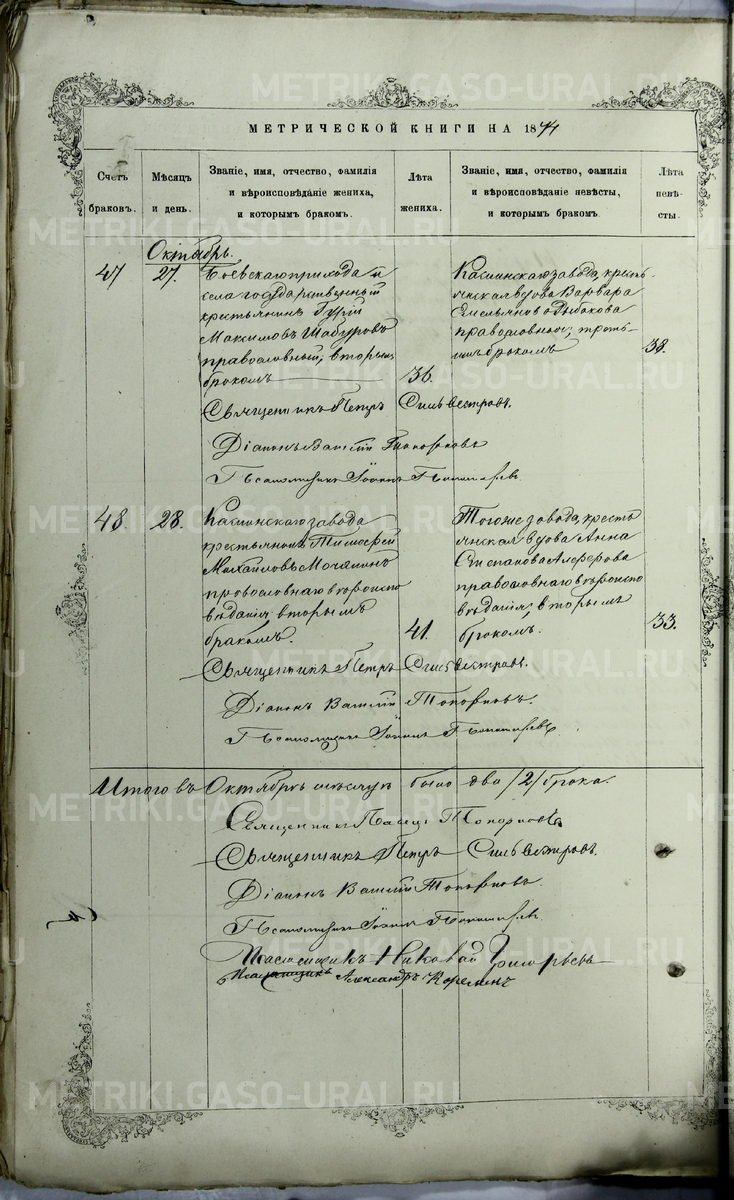 МЕТРИЧЕСКОЙ КНИГИ НА 1874
Счетъ браковъ.
Мѣсяцъ и день.
Званіе, имя, отчество, фамилія
и вѣроисповѣданіе жениха,
и которымъ бракомъ.
Лѣта жениха.
Званіе, имя, отчество, фамилія
и вѣроисповѣданіе невѣсты,
и которымъ бракомъ.
Лѣта невѣсты.
Октябрь.
47
27.
Боевскаго прихода и
села государственный
крестьянинъ Гурій
Максимовъ Шабуровъ
православный, вторымъ
бракомъ
36.
Каслинскаго завода, кресть-
янская вдова Варвара
Емельянова Рыбакова
православная, треть-
имъ бракомъ
38.
Священникъ Петръ Сильвестровъ.
Діаконъ Василій Топорковъ
Псаломщикъ Іоаннъ
48.
28.
Каслинскаго завода
крестьянинъ Тимофей
Михайловъ Мочалинъ
православнаго вѣроиспо
вѣданія, вторымъ
бракомъ.
41.
Тогоже завода, кресть
янская вдова Анна
Степанова Алферова
православнаго вѣроиспо
вѣданія, вторымъ
бракомъ.
33.
Священникъ Петръ Сильвестровъ.
Діаконъ Василій Топорковъ.
Псаломщикъ Іоаннъ
Итого въ Октябрѣ мѣсяцѣ было два /2/ брака.
Священникъ
Священникъ Петръ Сильвестровъ.
Діаконъ Василій Топорковъ.
Псаломщикъ Іоаннъ
Псаломщикъ Григорьевъ
Псаломщикъ Александръ
METRIKI.GASO-URAL.RU